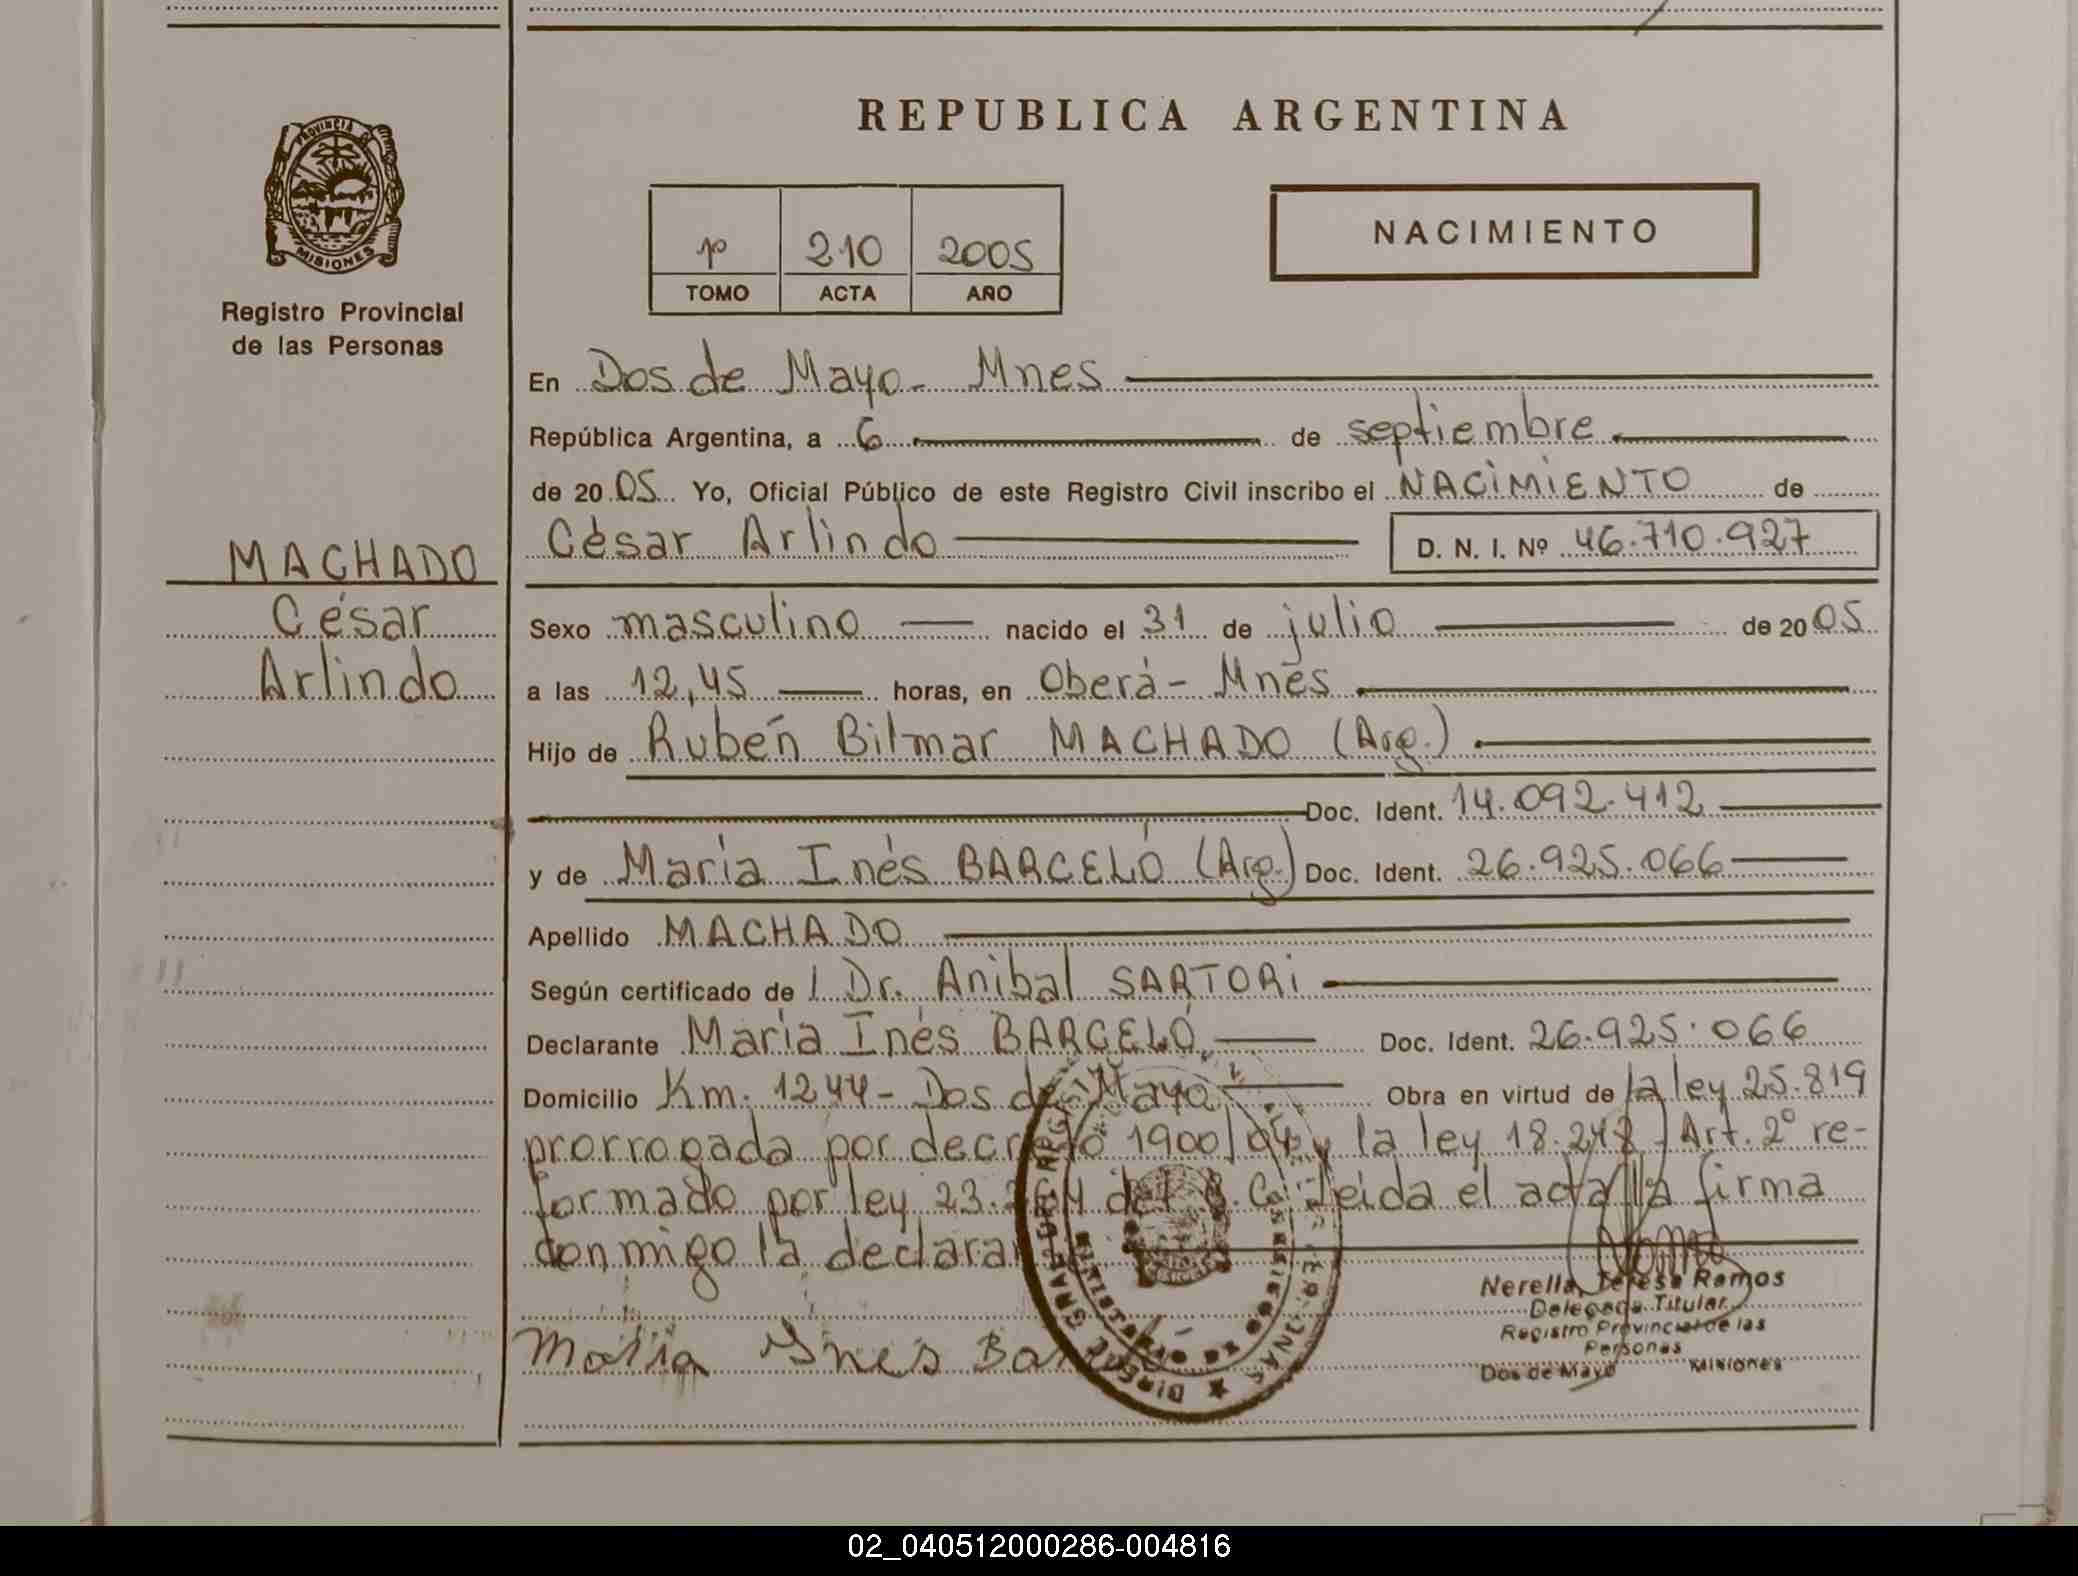 REPUBLICA ARGENTINA
PROVINCIA DE
MISIONES
Registro Provincial
de las Personas
p 210 2005
TOMO ACTA AÑO
NACIMIENTO
En Dos de Mayo - Mnes
República Argentina, a 6 de septiembre
de 20 05 Yo, Oficial Público de este Registro Civil inscribo el NACIMIENTO de
César Arlindo D. N. I. Nº 46.710.927
MACHADO
César
Arlindo
Sexo masculino nacido el 31 de julio de 20 05
a las 12,45 horas, en Oberá - Mnes
Hijo de Rubén Bilmar MACHADO (Arg.)
Doc. Ident. 14.092.412
y de María Inés BARCELÓ (Arg.) Doc. Ident. 26.925.066
Apellido MACHADO
Según certificado de l Dr. Anibal SARTORI
Declarante María Inés BARCELÓ Doc. Ident. 26.925.066
Domicilio Km. 1244 - Dos de Mayo Obra en virtud de la ley 25.819
prorrogada por decreto 1900/04 y la ley 18.248 Art. 2º re-
formado por ley 23.264 del C. C. Leida el acta la firma
conmigo la declarante
Nerella Teresa Ramos
Delegada Titular
Registro Provincial de las
Personas
Dos de Mayo Misiones
María Ynes
02_040512000286-004816